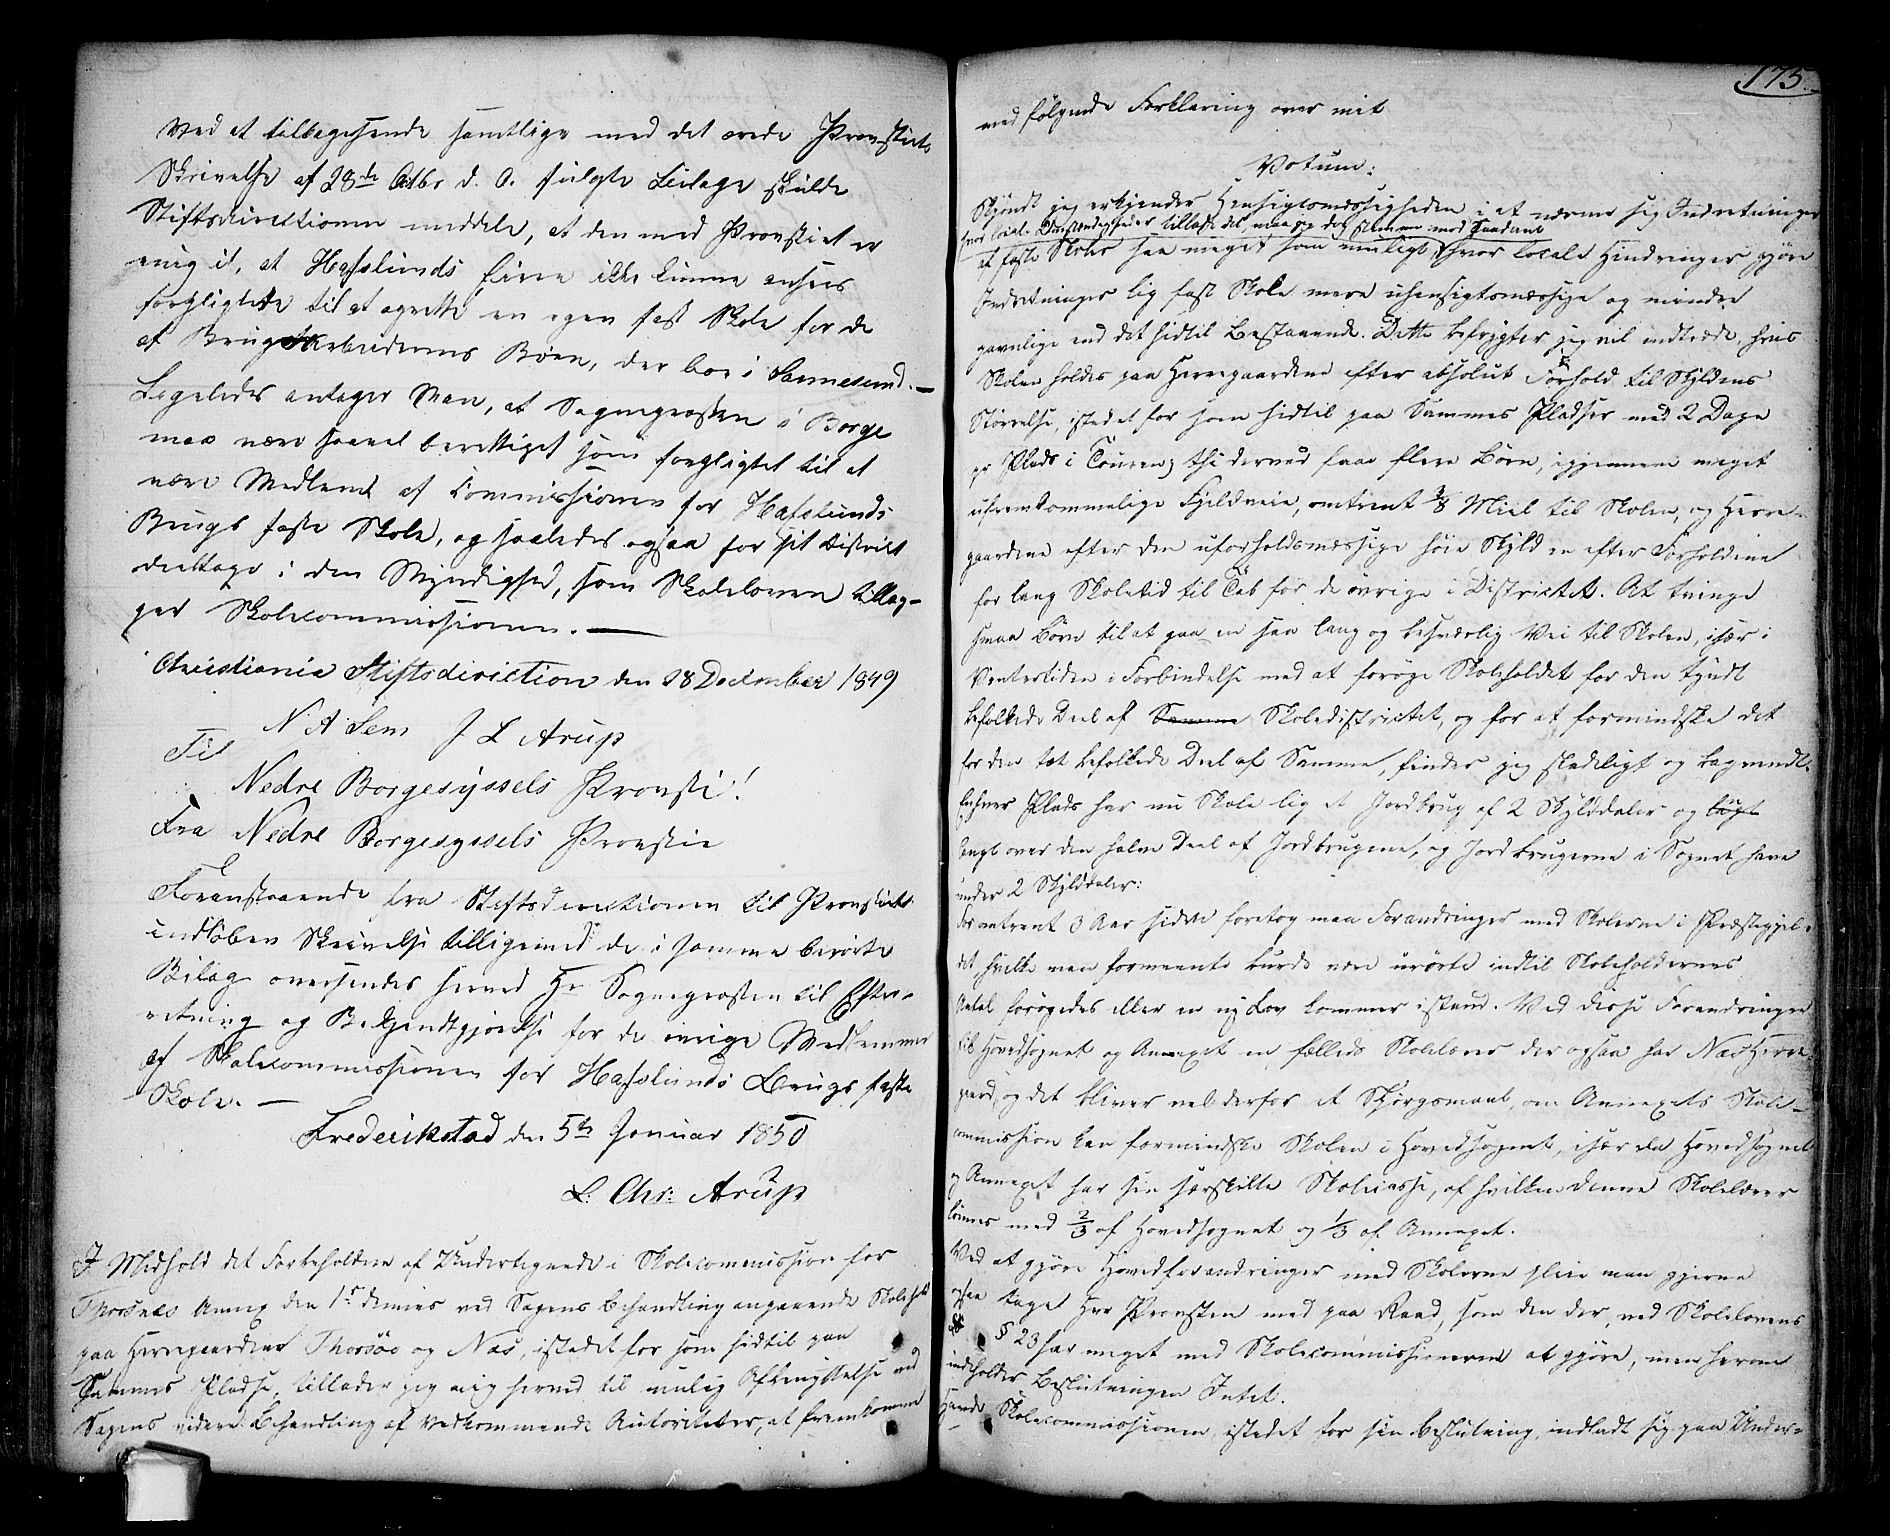 Ved at tilbagesende samtlige med det ærede Provsties
Skrivelse af 28de Octbr d. A. fulgte Bilage skulde
Stiftsdirectionen meddele, at den med Provstiet er
enig i, at Hafslunds Eiere ikke kunne ansees
forpligtede til at oprette en egen fast Skole for de
af Brugsarbeidernes Børn, der boe i Sannesund. —
Ligeledes antager Man, at Sognepræsten i Borge
maa være saavel berettiget som forpligtet til at
være Medlem af Commissionen for Hafslunds
Brugs faste Skole, og saaledes ogsaa for sit District
deeltage i den Myndighed, som Skoleloven tillæg-
ger Skolecommissionen. —
Christiania Stiftsdirection den 18 December 1849
N A Sem J L Arup
Til
Nedre Borgesyssels Provsti!
Fra Nedre Borgesyssels Provstie
Foranstaaende fra Stiftsdirectionen til Provstiet
indløben Skrivelse tilligemed de i samme berørte
Bilag oversendes herved Hr Sognepræsten til Efter-
retning og Bekjendtgjørelse for de øvrige Medlemmer
af Skolecommissionen for Hafslunds Brugs faste
Skole. —
Frederikstad den 5te Januar 1850
L: Chr: Arup
I Medhold det Forbeholdne af Undertegnede i Skolecommission for
Thorsnæs Annex den 1ste dennes ved Sagens Behandling angaaende Skolehold
paa Herregaardene Thorsøe og Næs, istedet for som hidtil paa
Sammes Pladse, tillader jeg mig herved til mulig Afbenyttelse ved
Sagens videre Behandling af Vedkommende Autoriteter, at fremkomme
175.
med følgende Forklaring over mit
Votum:
Skjøndt jeg erkjender Hensigtsmæssigheden i at nærme sig Indretninger
hvor locale Omstændigheder tillade det, maa jeg dog stemme mod Saadant
af faste Skoler saa meget som muligt, hvor locale Hindringer gjøre
Indretninger lig fast Skole mere uhensigtsmæssige og mindre
gavnlige end det hidtil Bestaaende. Dette befrygter jeg vil indtræde, hvis
Skolen holdes paa Herregaardene efter absolut Forhold til Skyldens
Størrelse, istedet for som hidtil paa Sammes Pladser med 2 Dage
pr Plads i Touren; thi derved faae flere Børn, igjennem meget
ufremkommelige Fjeldveie, omtrent 3/8 Miil til Skolen, og Herre-
gaardene efter den uforholdsmæssige høie Skyld en efter Forholdene
for lang Skoletid til Tab for de øvrige i Districtet. At tvinge
smaa Børn til at gaa en saa lang og besværlig Vei til Skolen, især i
Vintertiden i Forbindelse med at forøge Skoleholdet for den tyndt
befolkede Deel af Samme Skoledistrictet, og for at formindske det
for den tæt befolkede Deel af Samme, finder jeg skadeligt og bagvendt.
Enhver Plads har nu Skole lig et Jordbrug af 2 Skylddaler og
langt over den halve Deel af Jordbrugene, og Jordbrugerne i Sognet have
under 2 Skylddaler:
For omtrent 3 Aar siden foretog man Forandringer med Skolerne i Præstegjel-
det hvilke man formeente burde være urørte indtil Skoleholdernes
Antal forøgedes eller en ny Lov kommer istand. Ved disse Forandringer
fik Hovedsognet og Annexet en fælleds Skolelærer der ogsaa har Næs Herre-
gaard, og det bliver vel derfor et Spørgsmaal, om Annexets Skole-
commission kan formindske Skolen i Hovedsognet, især da Hovedsognet
og Annexet har sin særskilte Skolecasse, af hvilken denne Skolelærer
lønnes med 2/3 af Hovedsognet og 1/3 af Annexet.
Ved at gjøre Hovedforandringer med Skolerne skie man gjerne
ogsaa taget Herr Provsten med paa Raad, som den der, ved Skolelovens
§ 23 har meget med Skolecommissionerne at gjøre, men herom
indeholder Beslutningen Intet.
Havde Skolecommissionen, istedet for sin Beslutning, indladt sig paa Under-